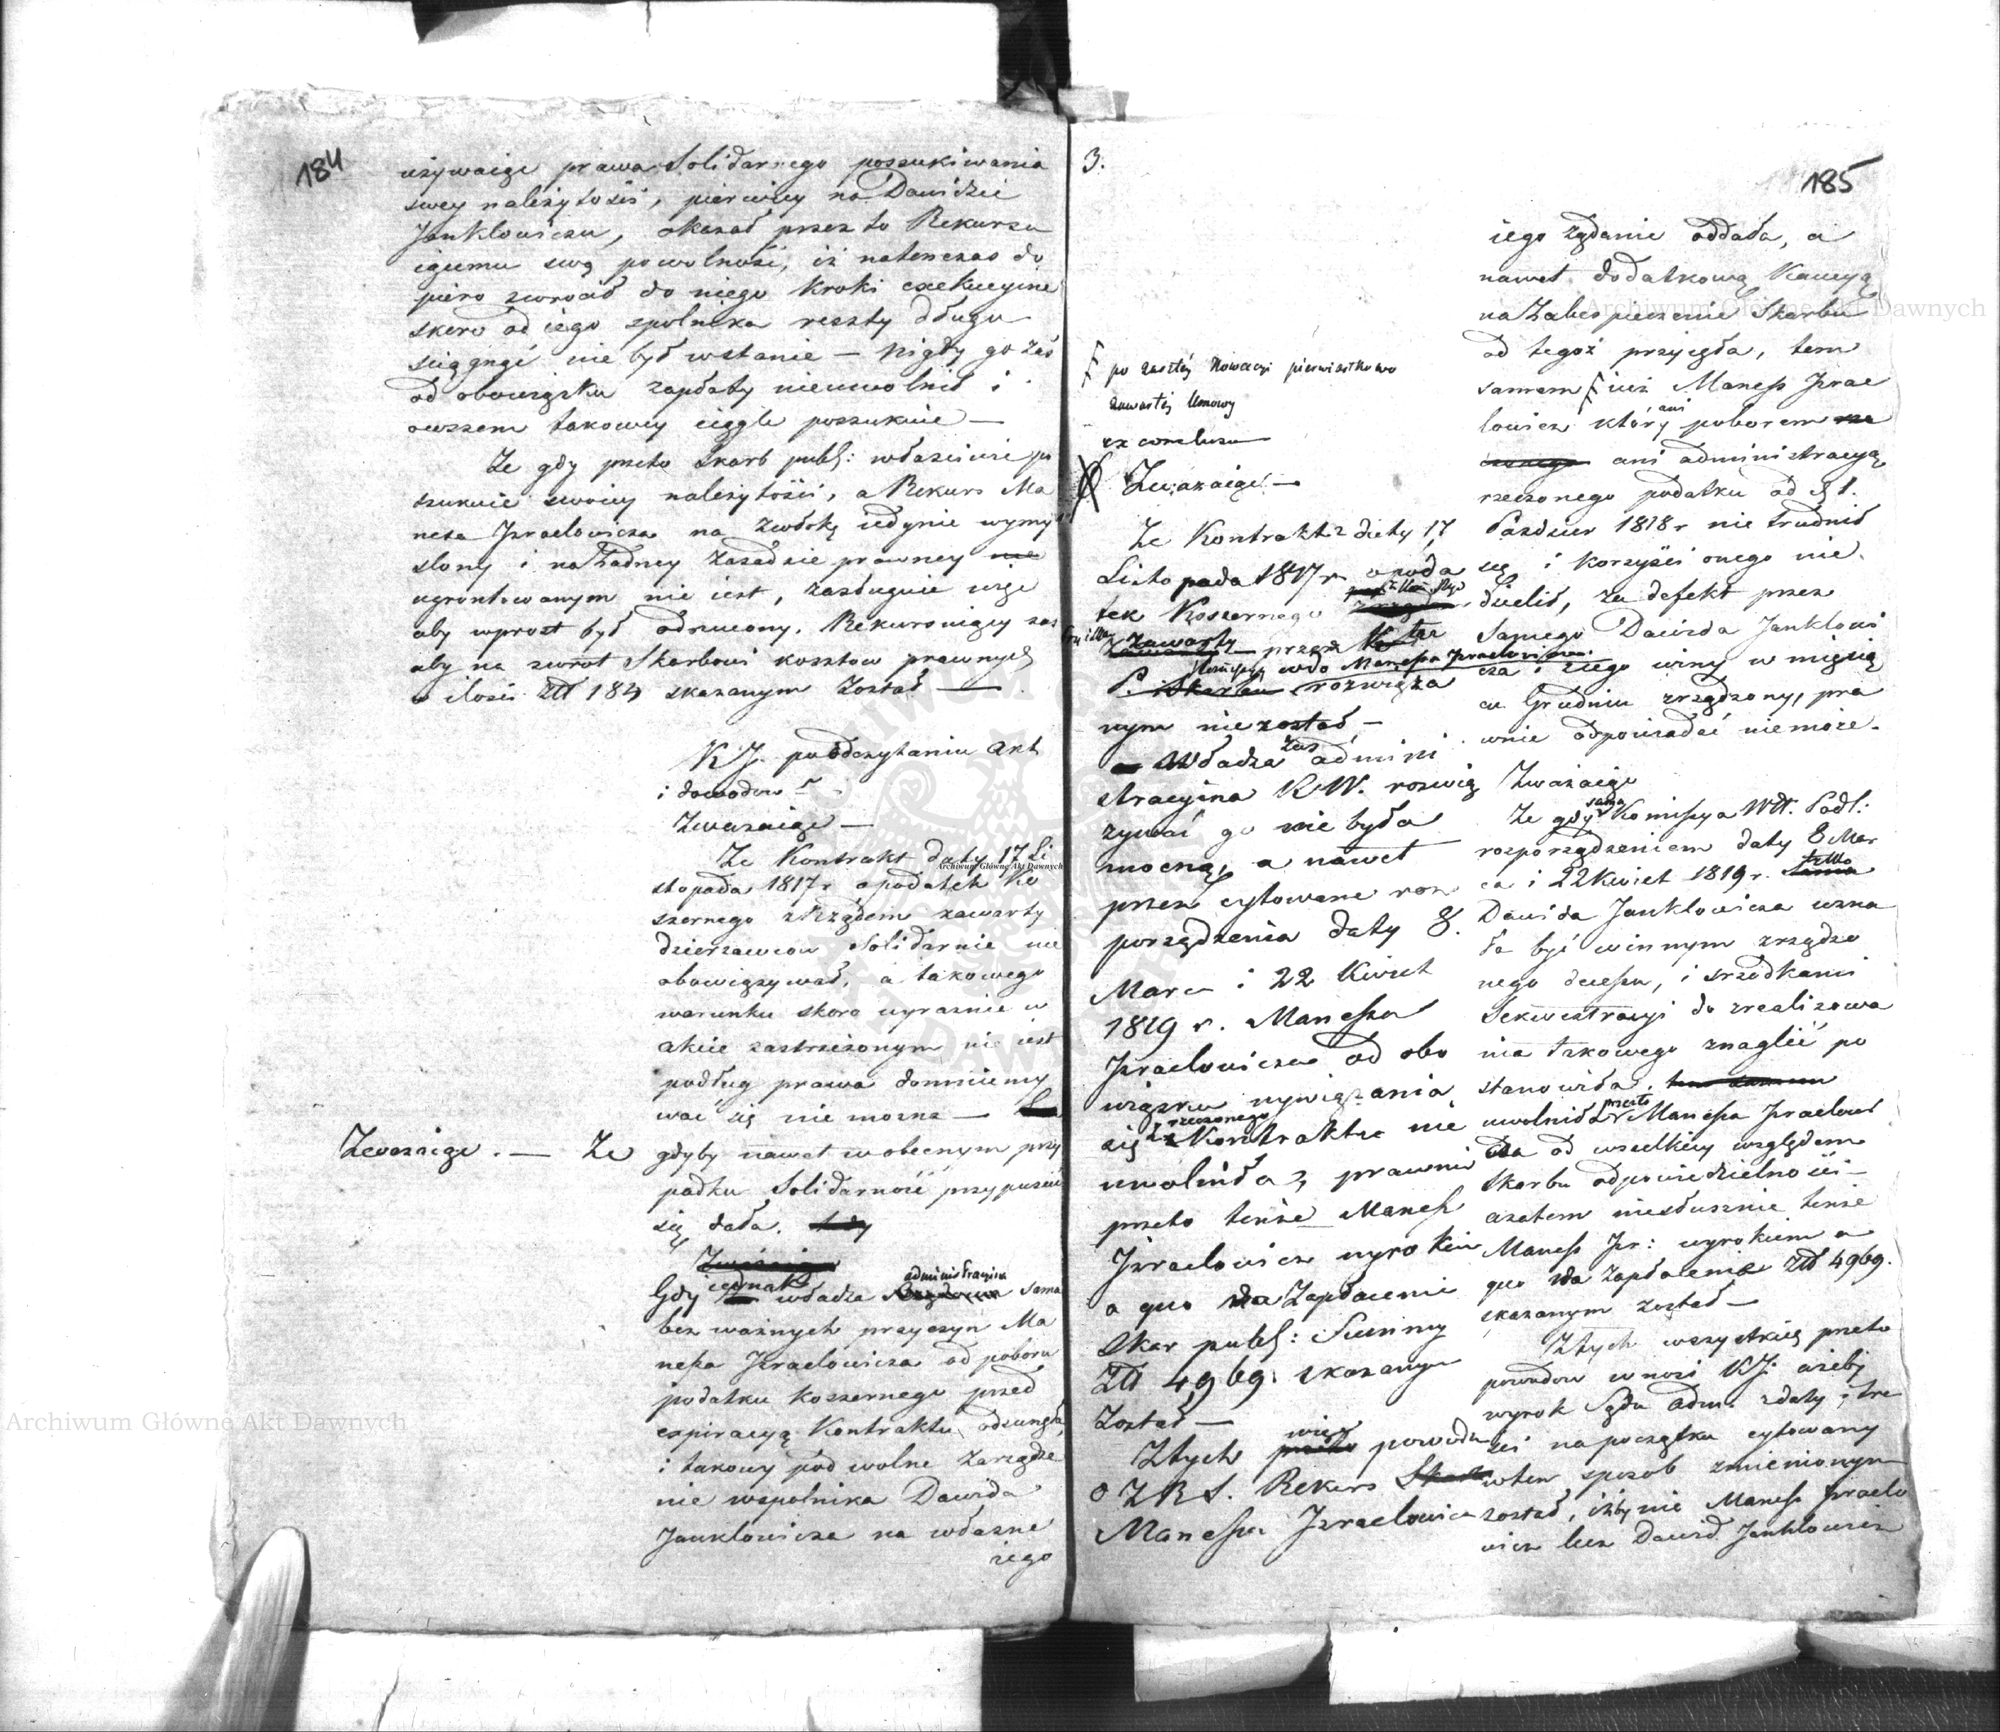 184
używaiąc prawa Solidarnego poszukiwania
swey należytości, pierwiey na Dawidzie
Janklowiczu, okazał przez to Rekursu
iącemu swą powolność, iż natenczas do
piero zwrócił do niego kroki exekucyine
skoro od iego spolnika reszty długu
sciągnąć nie był wstanie — nigdy go zaś
od obowiązku zapłaty nieuwolnił i
owszem takowey ciągle poszukuie —
Ze gdy przeto Skarb publ: właściwie po
szukuie swoiey należytości, a Rekurs Ma
nesa Izraelowicza na zwłokę iedynie wymy
slony i na żadney zasadzie prawney nie
ugruntowanym nie iest, zasługuie więc
aby wprost był odrzucony. Rekursuiący zaś
aby na zwrot Skarbowi kosztow prawnych
w ilości Złt 184 skazanym został —
KJ. po odczytaniu akt
i dowodow —
Zważaiąc —
Ze Kontrakt daty 17 Li
stopada 1817 r. o podatek Ko
szernego z Rządem zawarty
dzierzawcow Solidarnie nie
obowiązywał, a takowego
warunku skoro wyraznie w
akcie zastrzeżonym nie iest
podług prawa domniemy
wać się nie można —
Zważaiąc . — Ze gdyby nawet w obecnym przy
padku Solidarność przypuścić
się dała. tedy
Zważaiąc
administracyina
iednak
Gdy władza Rządowa sama
bez ważnych przyczyn Ma
nessa Izraelowicza od poboru
podatku koszernego przed
expiracyą Kontraktu, odsunęła,
i takowy pod wolne zarządze
nie wspolnika Dawida
Janklowicza na własne
iego
3.
po zaszłey Nowacyi pierwiastkowo
zawartey Umowy
ex conclusu
Zważaiąc —
Ze Kontrakt z daty 17
Listopada 1817 r. o poda
tek Koszernego
zawarty — przez
wdo Manessa Izraelowicza
P. Skarbu rozwiąza
nym nie został —
zaś
Władza admini
stracyina K W. rozwią
zywać go nie była
mocną, a nawet
przez cytowane roz
porządzenia daty 8.
Marca i 22 Kwiet
1819 r. Manessa
Izraelowicza od obo
wiązku wywiązania
rzeczonego
się z Kontraktu nie
uwolniła, prawnie
przeto tenże Maness
Izraelowicz wyrokiem
a quo na Zapłacenie
Skar publ: Summy
Złt 4969. skazanym
Został —
więc
Ztych przeto powodow
Z R S. Rekurs Skar
Manessa Izraelowicz
185
iego żądanie oddała, a
nawet dodatkową Kaucyą
na Zabespieczenie Skarbu
od tegoż przyięła, tem
samem iuż Maness Izrae
ani
lowicz który poborem
ani administracyą
rzeczonego podatku od d 1.
Pazdzier 1818 r nie trudnił
się i korzyści onego nie
dzielił, za defekt przez
Samego Dawida Janklowi
cza i z iego winy w miesią
cu Grudniu zrządzony, pra
wnie odpowiadać nie może.
Zważaiąc
sama
Ze gdy Komissya Wdt. Podl:
rozporządzeniem daty 8 Mar
ca i 22 Kwiet 1819 r. tylko
Dawida Janklowicza uzna
ła być winnym zrządzo
nego decessu, i srzodkami
Sekwestracyi do zrealizowa
nia takowego znaglić po
stanowiła. tem samem
przeto
uwolniła Manessa Izraelowi
cza od wszelkiey względem
Skarbu odpowiedzielności —
azatem niesłusznie tenże
Maness Izr: wyrokiem a
quo na zapłacenie Złt 4969.
skazanym został —
Ztych wszystkich przeto
powodow wnosi KJ. ażeby
wyrok Sądu adm. z daty i tre
ści na początku cytowany
wten sposob zmienionym
został, iżby nie Maness Izraelo
wicz lecz Dawid Janklowicz